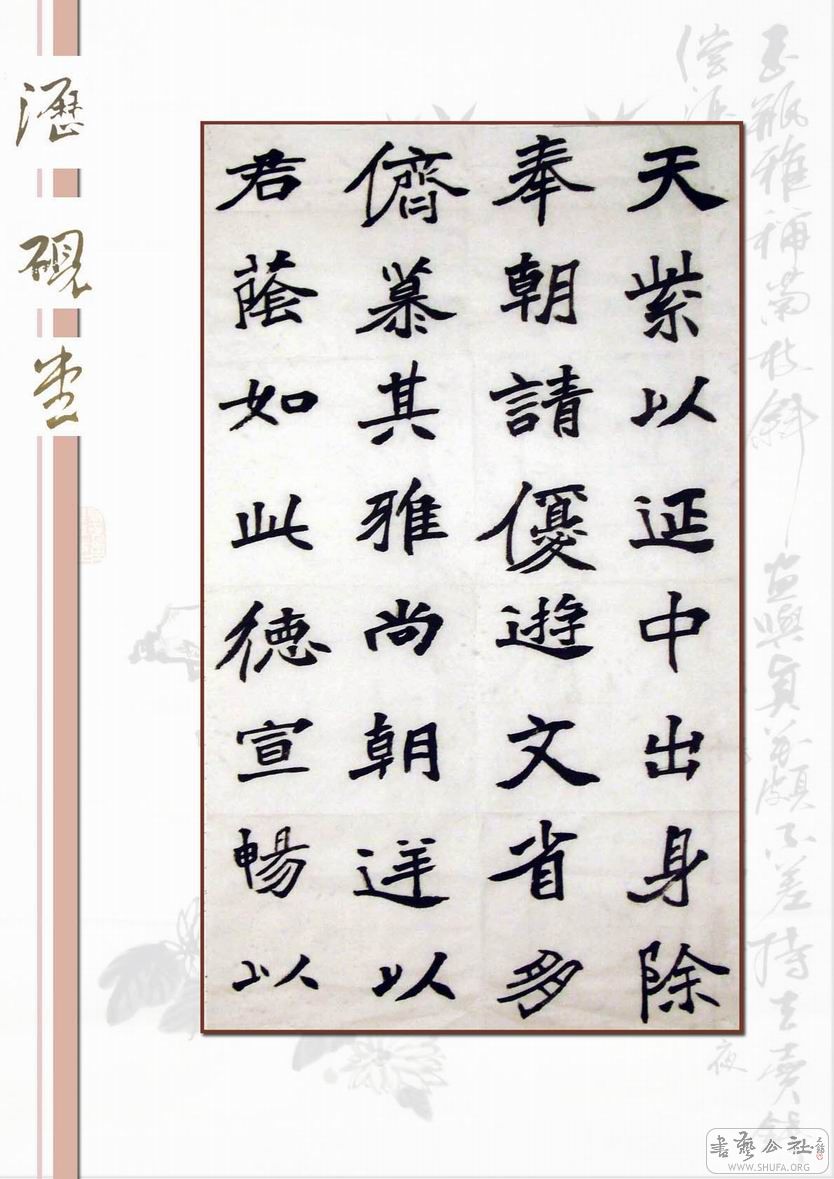 天紫以延中出身除
奉朝請優遊文省多
儕慕其雅尚朝廷以
君蔭如此德宣暢以
瀝硯堂
書藝公社
WWW.SHUFA.ORG